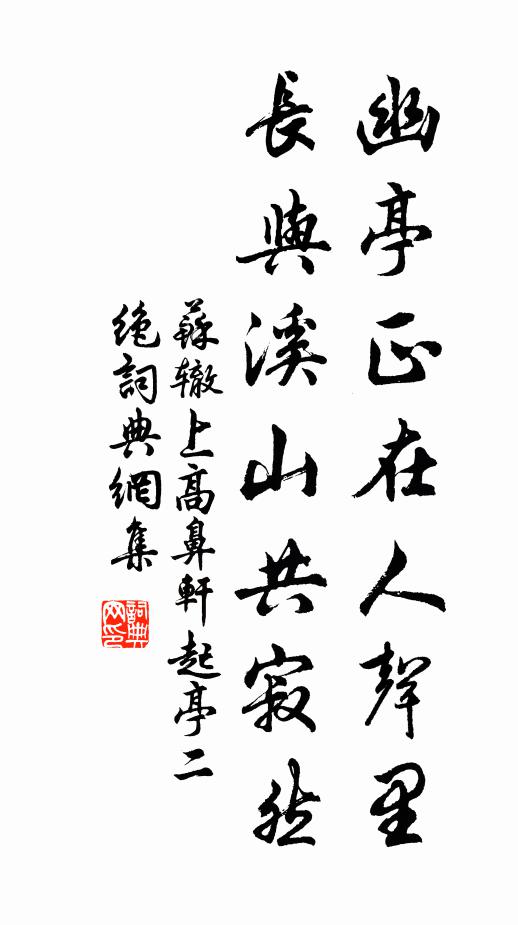 幽亭正在人聲里
長與溪山共寂然
蘇辙上高鼻軒起亭二
绝詞典網集
詞典网印